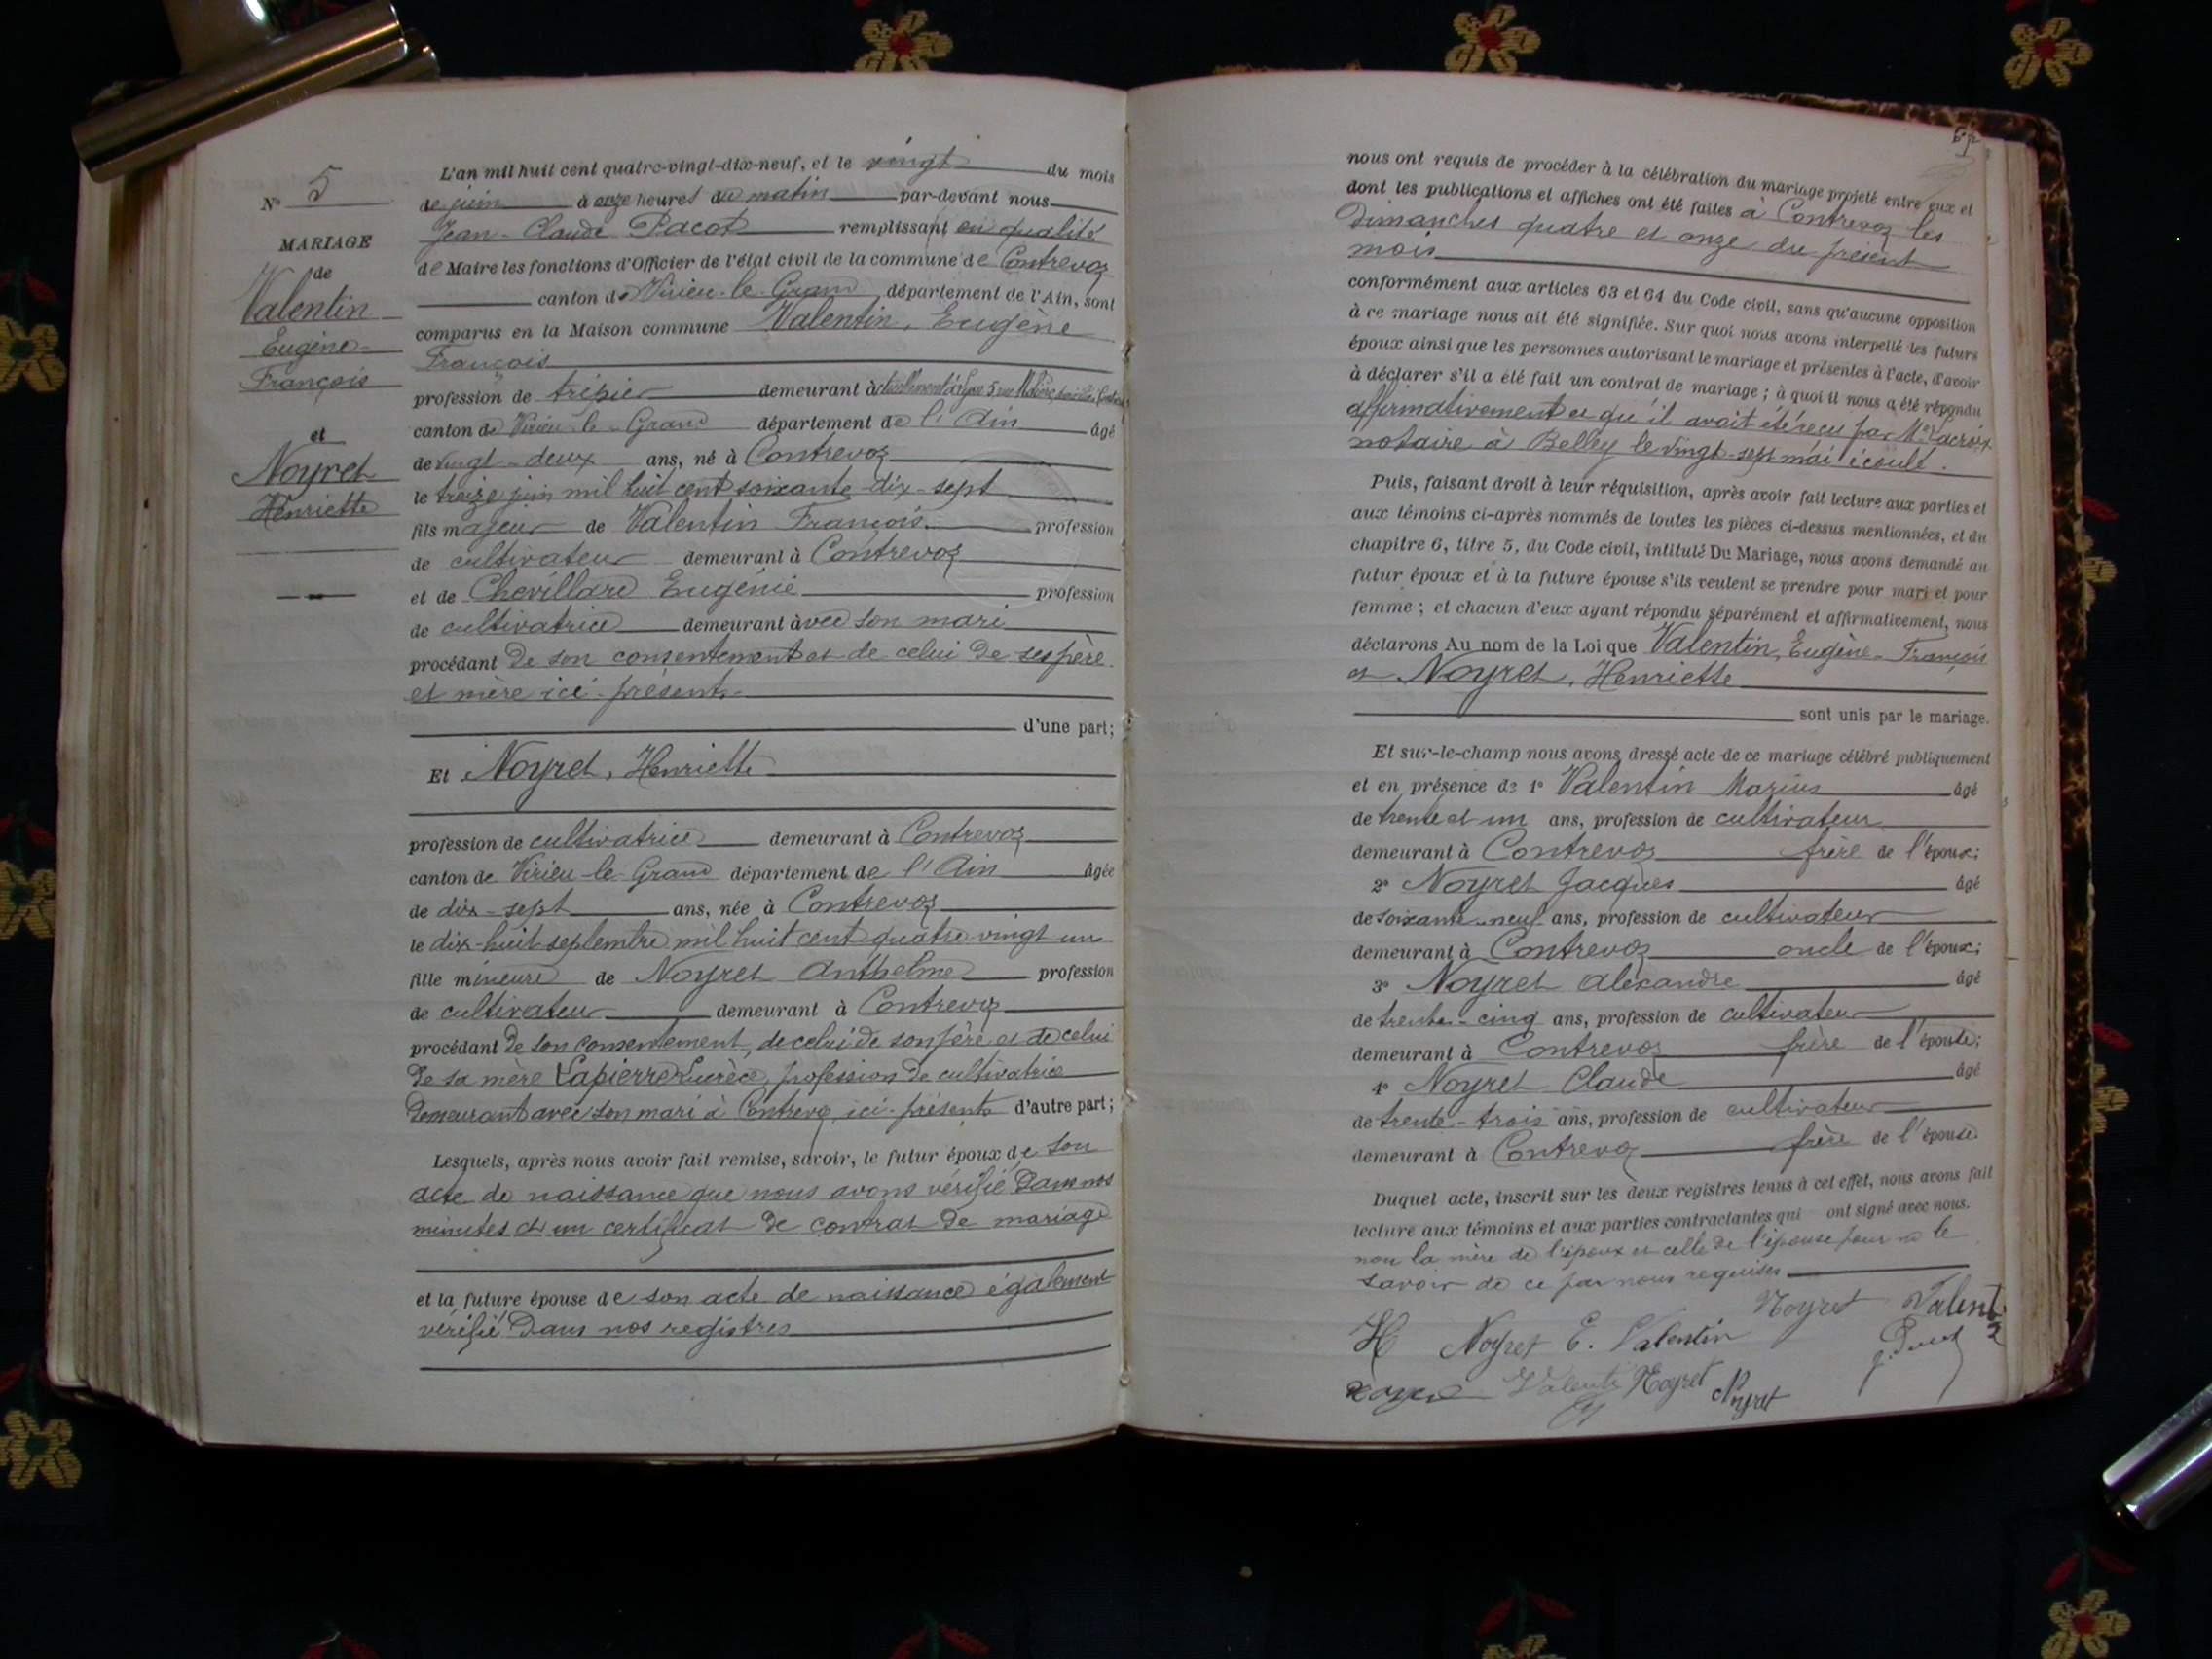 N° 5
MARIAGE
de
Valentin
Eugène
François
et
Noyret
Henriette
L'an mil huit cent quatre-vingt-dix-neuf, et le vingt du mois
de juin à onze heures du matin par-devant nous
Jean-Claude Pacot remplissant en qualité
de Maire les fonctions d'Officier de l'état civil de la commune de Contrevoz
canton de Virieu-le-Grand département de l'Ain, sont
comparus en la Maison commune Valentin, Eugène
François
profession de tripier demeurant à
canton de Virieu-le-Grand département de l'Ain âgé
de vingt-deux ans, né à Contrevoz
le treize juin mil huit cent soixante-dix-sept
fils majeur de Valentin François profession
de cultivateur demeurant à Contrevoz
et de Chevillard Eugénie profession
de cultivatrice demeurant avec son mari
procédant de son consentement et de celui de ses père
et mère ici-présents
d'une part;
Et Noyret, Henriette
profession de cultivatrice demeurant à Contrevoz
canton de Virieu-le-Grand département de l'Ain âgée
de dix-sept ans, née à Contrevoz
le dix-huit septembre mil huit cent quatre vingt un
fille mineure de Noyret Anthelme profession
de cultivateur demeurant à Contrevoz
procédant de son consentement, de celui de son père et de celui
de sa mère Lapierre Lucrèce, profession de cultivatrice
demeurant avec son mari à Contrevoz ici-présents d'autre part;
Lesquels, après nous avoir fait remise, savoir, le futur époux de son
acte de naissance que nous avons vérifié dans nos
minutes et un certificat de contrat de mariage
et la future épouse de son acte de naissance également
vérifié dans nos registres
nous ont requis de procéder à la célébration du mariage projeté entre eux et
dont les publications et affiches ont été faites à Contrevoz les
dimanches quatre et onze du présent
mois
conformément aux articles 63 et 64 du Code civil, sans qu'aucune opposition
à ce mariage nous ait été signifiée. Sur quoi nous avons interpellé les futurs
époux ainsi que les personnes autorisant le mariage et présentes à l'acte, d'avoir
à déclarer s'il a été fait un contrat de mariage; à quoi il nous a été répondu
affirmativement et qu'il avait été reçu par Me Lacroix
notaire à Belley le vingt-sept mai écoulé.
Puis, faisant droit à leur réquisition, après avoir fait lecture aux parties et
aux témoins ci-après nommés de toutes les pièces ci-dessus mentionnées, et du
chapitre 6, titre 5, du Code civil, intitulé Du Mariage, nous avons demandé au
futur époux et à la future épouse s'ils veulent se prendre pour mari et pour
femme; et chacun d'eux ayant répondu séparément et affirmativement, nous
déclarons Au nom de la Loi que Valentin, Eugène-François
et Noyret, Henriette
sont unis par le mariage.
Et sur-le-champ nous avons dressé acte de ce mariage célébré publiquement
et en présence de 1° Valentin Marius âgé
de trente et un ans, profession de cultivateur
demeurant à Contrevoz frère de l'époux;
2° Noyret Jacques âgé
de soixante-neuf ans, profession de cultivateur
demeurant à Contrevoz oncle de l'époux;
3° Noyret Alexandre âgé
de trente-cinq ans, profession de cultivateur
demeurant à Contrevoz frère de l'épouse;
4° Noyret Claude âgé
de trente-trois ans, profession de cultivateur
demeurant à Contrevoz frère de l'épouse.
Duquel acte, inscrit sur les deux registres tenus à cet effet, nous avons fait
lecture aux témoins et aux parties contractantes qui ont signé avec nous.
non la mère de l'époux et celle de l'épouse pour ne le
savoir de ce par nous requises
Noyret Valentin
H Noyret E. Valentin
Valentin Noyret Noyret